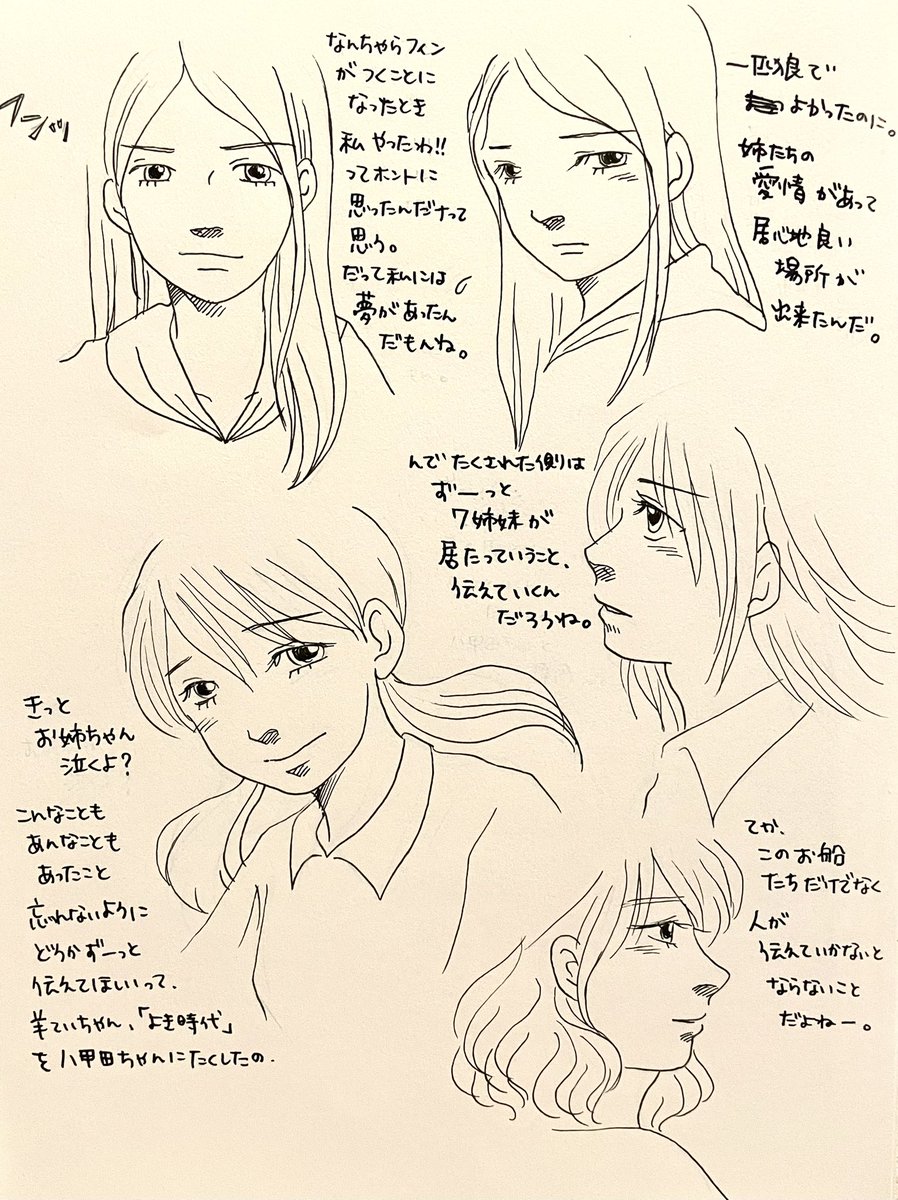 フンッ
なんちゃらフィン
がつくことに
なったとき
私やったわ!!
ってホントに
思ったんだナって
思う。
だって私には
夢があったん
だもんね。
一匹狼で
よかったのに。
姉たちの
愛情があって
居心地良い
場所が
出来たんだ。
んでたくされた側は
ずーっと
7姉妹が
居たっていうこと、
伝えていくん
だろうね。
きっと
お姉ちゃん
泣くよ?
こんなことも
あんなことも
あったこと
忘れないように
どうかずーっと
伝えてほしいって、
羊ていちゃん、「よき時代」
を八甲田ちゃんにたくしたの.
てか、
このお船
たちだけでなく
人が
伝えていかないと
ならないこと
だよねー。